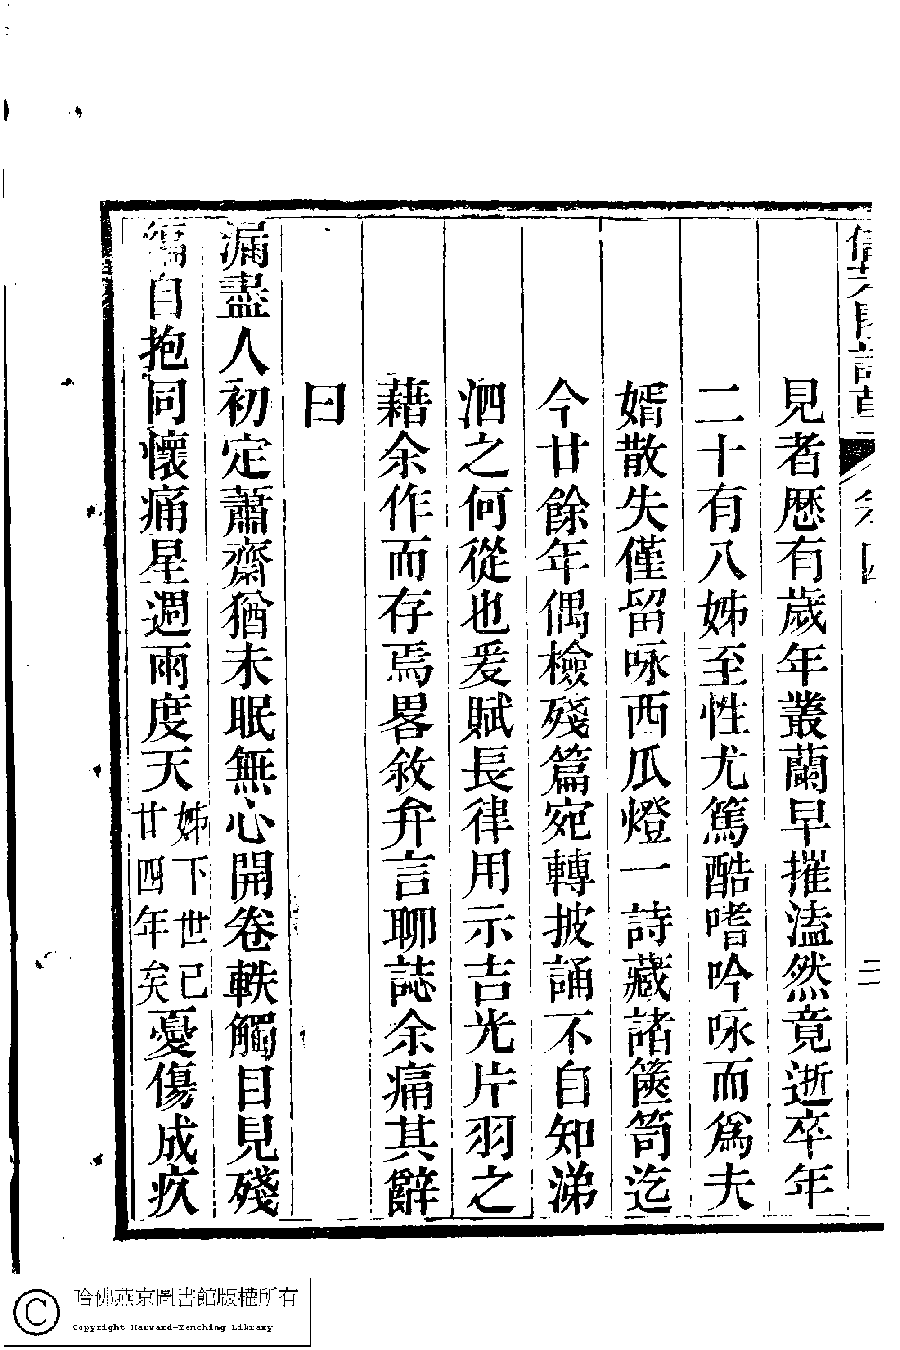 見者歷有歲年叢蘭早摧溘然竟逝卒年
二十有八姊至性尤篤酷嗜吟咏而為夫
婿散失僅留咏西瓜燈一詩藏諸篋笥迄
今廿餘年偶檢殘篇宛轉披誦不自知涕
泗之何從也爰賦長律用示吉光片羽之
藉余作而存焉畧敘弁言聊誌余痛其辭
曰
漏盡人初定蕭齋猶未眠無心開卷軼觸目見殘
編自抱同懷痛星週兩度天姊下世已廿四年矣憂傷成疚
二
哈佛燕京圖書館版權所有
Copyright Harvard-Yenching Library